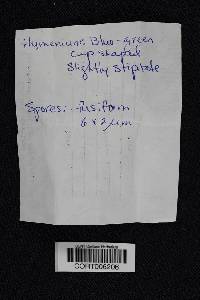 Hymenium: Blue-green
cup shaped
Slightly stipitate
Spores: fusiform
6 x 2 µm
CORT006206